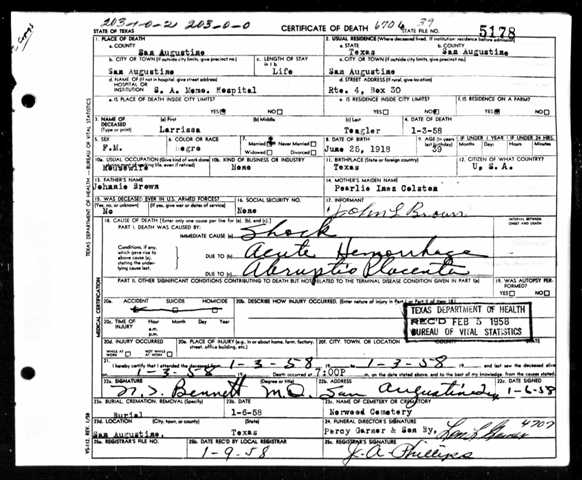 203-10-2 203-0-0
STATE OF TEXAS
CERTIFICATE OF DEATH 6706 39
STATE FILE NO. 5178
1. PLACE OF DEATH
a. COUNTY
San Augustine
2. USUAL RESIDENCE (Where deceased lived. If institution: residence before admission)
a. STATE
Texas
b. COUNTY
San Augustine
b. CITY OR TOWN (If outside city limits, give precinct no.)
San Augustine
c. LENGTH OF STAY
in 1 b
Life
c. CITY OR TOWN (If outside city limits, give precinct no.)
San Augustine
d. NAME OF (If not in hospital, give street address)
HOSPITAL OR
INSTITUTION
S. A. Memo. Hospital
d. STREET ADDRESS (If rural, give location)
Rte. 4, Box 30
e. IS PLACE OF DEATH INSIDE CITY LIMITS?
YES NO
e. IS RESIDENCE INSIDE CITY LIMITS?
YES NO
f. IS RESIDENCE ON A FARM?
YES NO
3. NAME OF
DECEASED
(Type or print)
(a) First
Larrissa
(b) Middle
(c) Last
Teagler
4. DATE OF DEATH
1-3-58
5. SEX
F.M.
6. COLOR OR RACE
egro
7.
Married Never Married
Widowed Divorced
8. DATE OF BIRTH
June 25, 1918
9. AGE (In years
last birthday)
39
IF UNDER 1 YEAR
Months Days
IF UNDER 24 HRS.
Hours Minutes
10a. USUAL OCCUPATION (Give kind of work done
during most of working life, even if retired)
Housewife
10b. KIND OF BUSINESS OR INDUSTRY
None
11. BIRTHPLACE (State or foreign country)
Texas
12. CITIZEN OF WHAT COUNTRY?
U. S. A.
13. FATHER'S NAME
Johnnie Brown
14. MOTHER'S MAIDEN NAME
Pearlie Inez Colston
15. WAS DECEASED EVER IN U.S. ARMED FORCES?
(Yes, no, or unknown) (If yes, give war or dates of service)
No
16. SOCIAL SECURITY NO.
None
17. INFORMANT
John L Brown
18. CAUSE OF DEATH [Enter only one cause per line for (a), (b), and (c).]
INTERVAL BETWEEN
ONSET AND DEATH
PART I. DEATH WAS CAUSED BY:
IMMEDIATE CAUSE (a) Shock
Conditions, if any,
which gave rise to
above cause (a),
stating the under-
lying cause last.
DUE TO (b) Acute Hemorrhage
DUE TO (c) Abruptio Placenta
PART II. OTHER SIGNIFICANT CONDITIONS CONTRIBUTING TO DEATH BUT NOT RELATED TO THE TERMINAL DISEASE CONDITION GIVEN IN PART I(a)
19. WAS AUTOPSY PERFORMED?
YES NO
20a. ACCIDENT SUICIDE HOMICIDE
20b. DESCRIBE HOW INJURY OCCURRED. (Enter nature of injury in Part I or Part II of item 18.)
20c. TIME OF
INJURY
Hour Month Day Year
a.m.
p.m.
TEXAS DEPARTMENT OF HEALTH
REC'D FEB 5 1958
BUREAU OF VITAL STATISTICS
20d. INJURY OCCURRED
WHILE AT WORK NOT WHILE AT WORK
20e. PLACE OF INJURY (e.g. in or about home, farm, factory, street, office building, etc.)
20f. CITY, TOWN, OR LOCATION
COUNTY
STATE
21. I hereby certify that I attended the deceased from 1-3-58, 1-3-58
1-3-58 Death occurred at 7:00P m. on the date stated above, and to the best of my knowledge, from the causes stated.
22a. SIGNATURE
Bennett
(Degree or title)
M.D.
22b. ADDRESS
San Augustine
22c. DATE SIGNED
1-6-58
23a. BURIAL, CREMATION, REMOVAL (Specify)
Burial
23b. DATE
1-6-58
23c. NAME OF CEMETERY OR CREMATORY
Norwood Cemetery
23d. LOCATION (City, town, or county) (State)
San Augustine, Texas
24. FUNERAL DIRECTOR'S SIGNATURE
Percy Garner & Son By. 4707
25a. REGISTRAR'S FILE NO.
25b. DATE REC'D BY LOCAL REGISTRAR
1-9-58
25c. REGISTRAR'S SIGNATURE
J. A. Phillips
TEXAS DEPARTMENT OF HEALTH — BUREAU OF VITAL STATISTICS
MEDICAL CERTIFICATION
VS-112 REV. 1/58